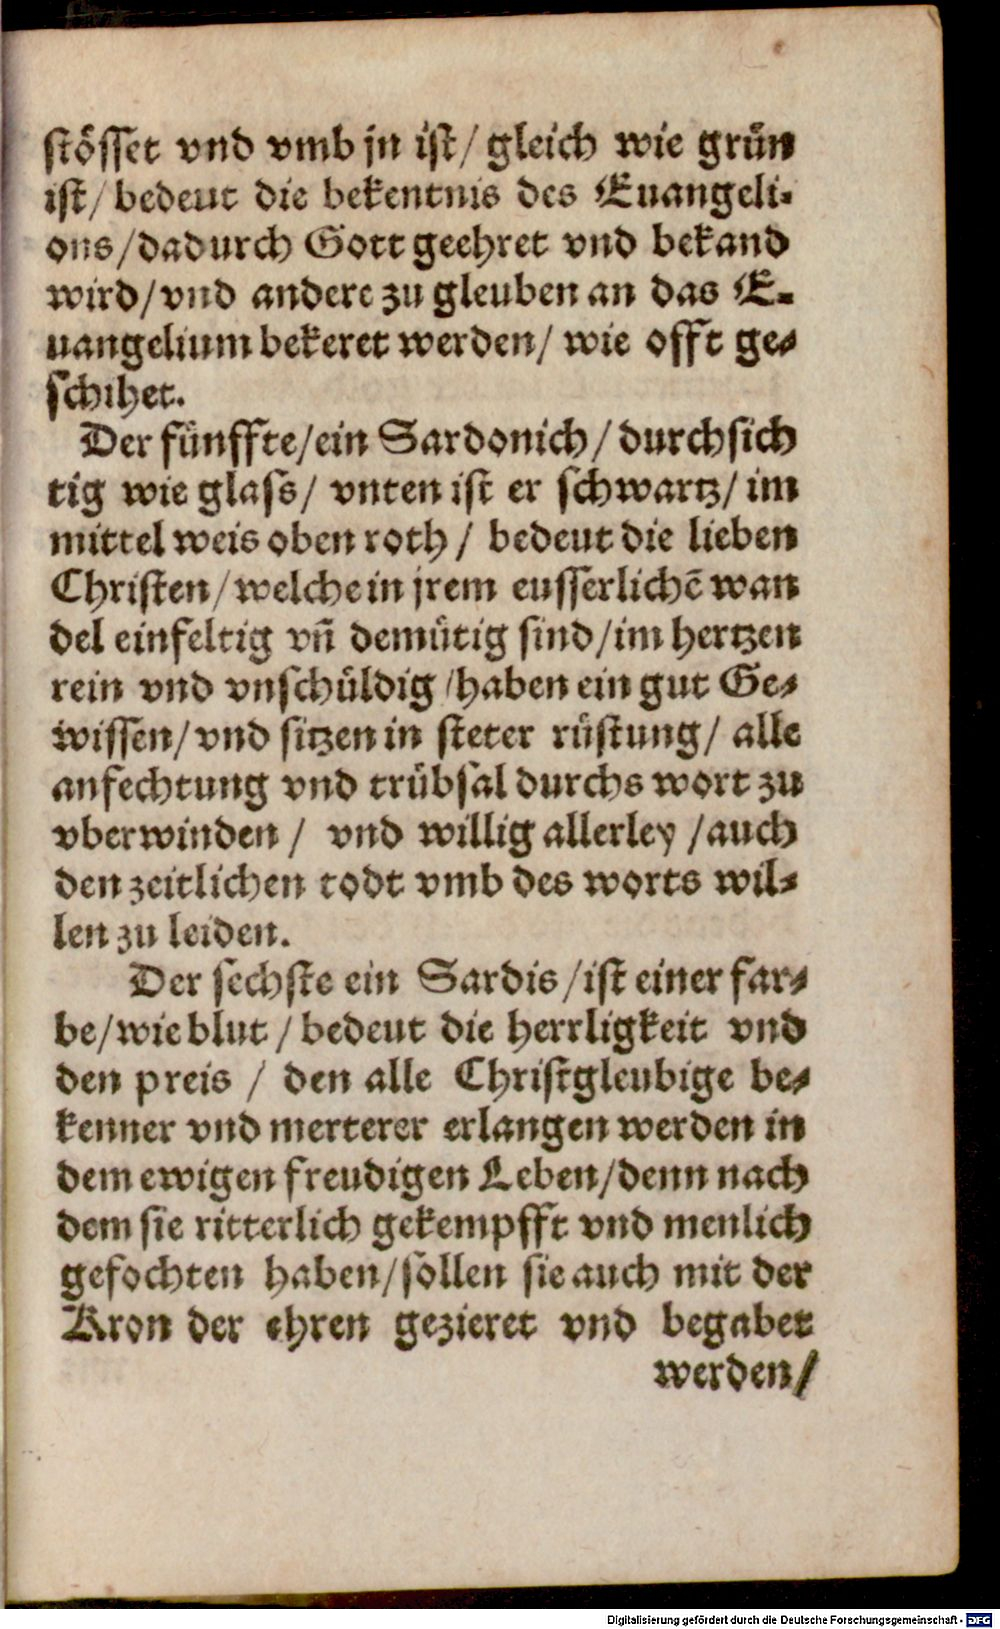 stösset vnd vmb jn ist/ gleich wie grün
ist/ bedeut die bekentnis des Euangeli-
ons/dadurch Gott geehret vnd bekand
wird/vnd andere zu gleuben an das E-
uangelium bekeret werden/ wie offt ge-
schihet.
Der fünffte/ein Sardonich/durchsich
tig wie glass/ vnten ist er schwartz/im
mittel weis oben roth/ bedeut die lieben
Christen/welche in jrem eusserlichē wan
del einfeltig vn̄ demütig sind/im hertzen
rein vnd vnschüldig/haben ein gut Ge-
wissen/vnd sitzen in steter rüstung/ alle
anfechtung vnd trübsal durchs wort zu
vberwinden/ vnd willig allerley/auch
den zeitlichen todt vmb des worts wil-
len zu leiden.
Der sechste ein Sardis/ist einer far-
be/wie blut/bedeut die herrligkeit vnd
den preis/ den alle Christgleubige be-
kenner vnd merterer erlangen werden in
dem ewigen freudigen Leben/denn nach
dem sie ritterlich gekempfft vnd menlich
gefochten haben/sollen sie auch mit der
Kron der ehren gezieret vnd begabet
werden/
Digitalisierung gefördert durch die Deutsche Forschungsgemeinschaft - DFG